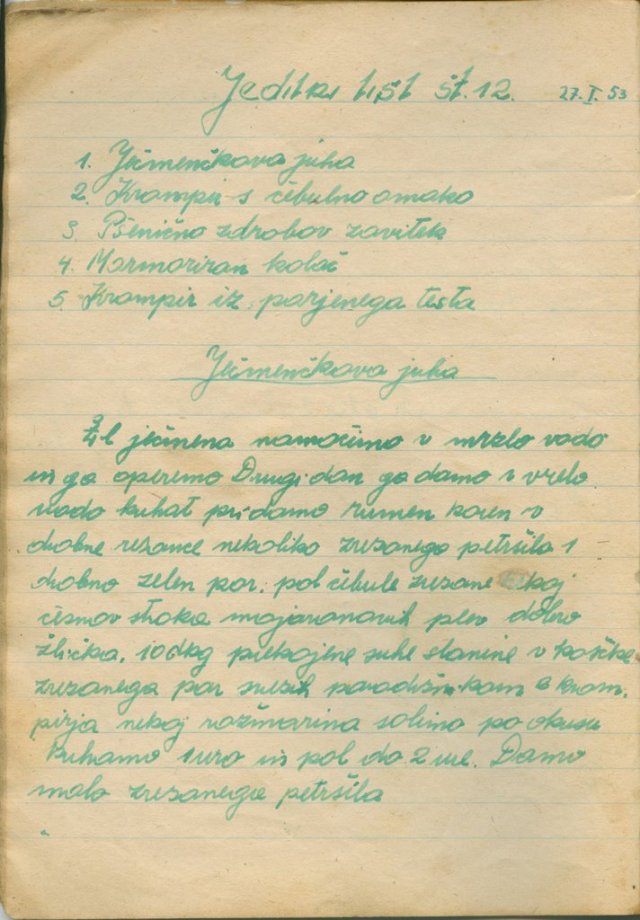 Jedilni list št. 12. 27. I. 53
1. Ječmenčkova juha
2. Krompir s čebulno omako
3. Pšenično zdrobov zavitek
4. Marmoriran kolač
5. Krompir iz parjenega testa
Ječmenčkova juha
ječmena namočimo v mrzlo vodo
in ga operemo Drugi dan ga damo v vrelo
vodo kuhat pridamo rumen koren v
drobne rezance nekoliko zrezanega petršila 1
drobno zelen por. pol čebule zrezane nekaj
česnov stroka majaronovih plev dobro
žlička. 10 dkg prekajene suhe slanine v koščke
zrezanega par krom-
pirja nekaj rožmarina solimo po okusu
Kuhamo 1 uro in pol do 2 ure. Damo
malo zrezanega petršila